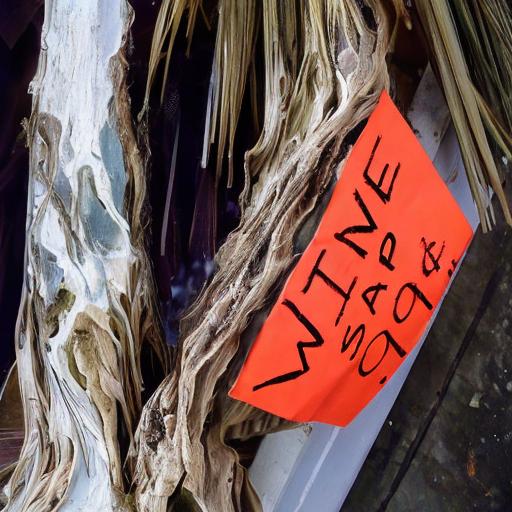 WINE
SAP
.99¢